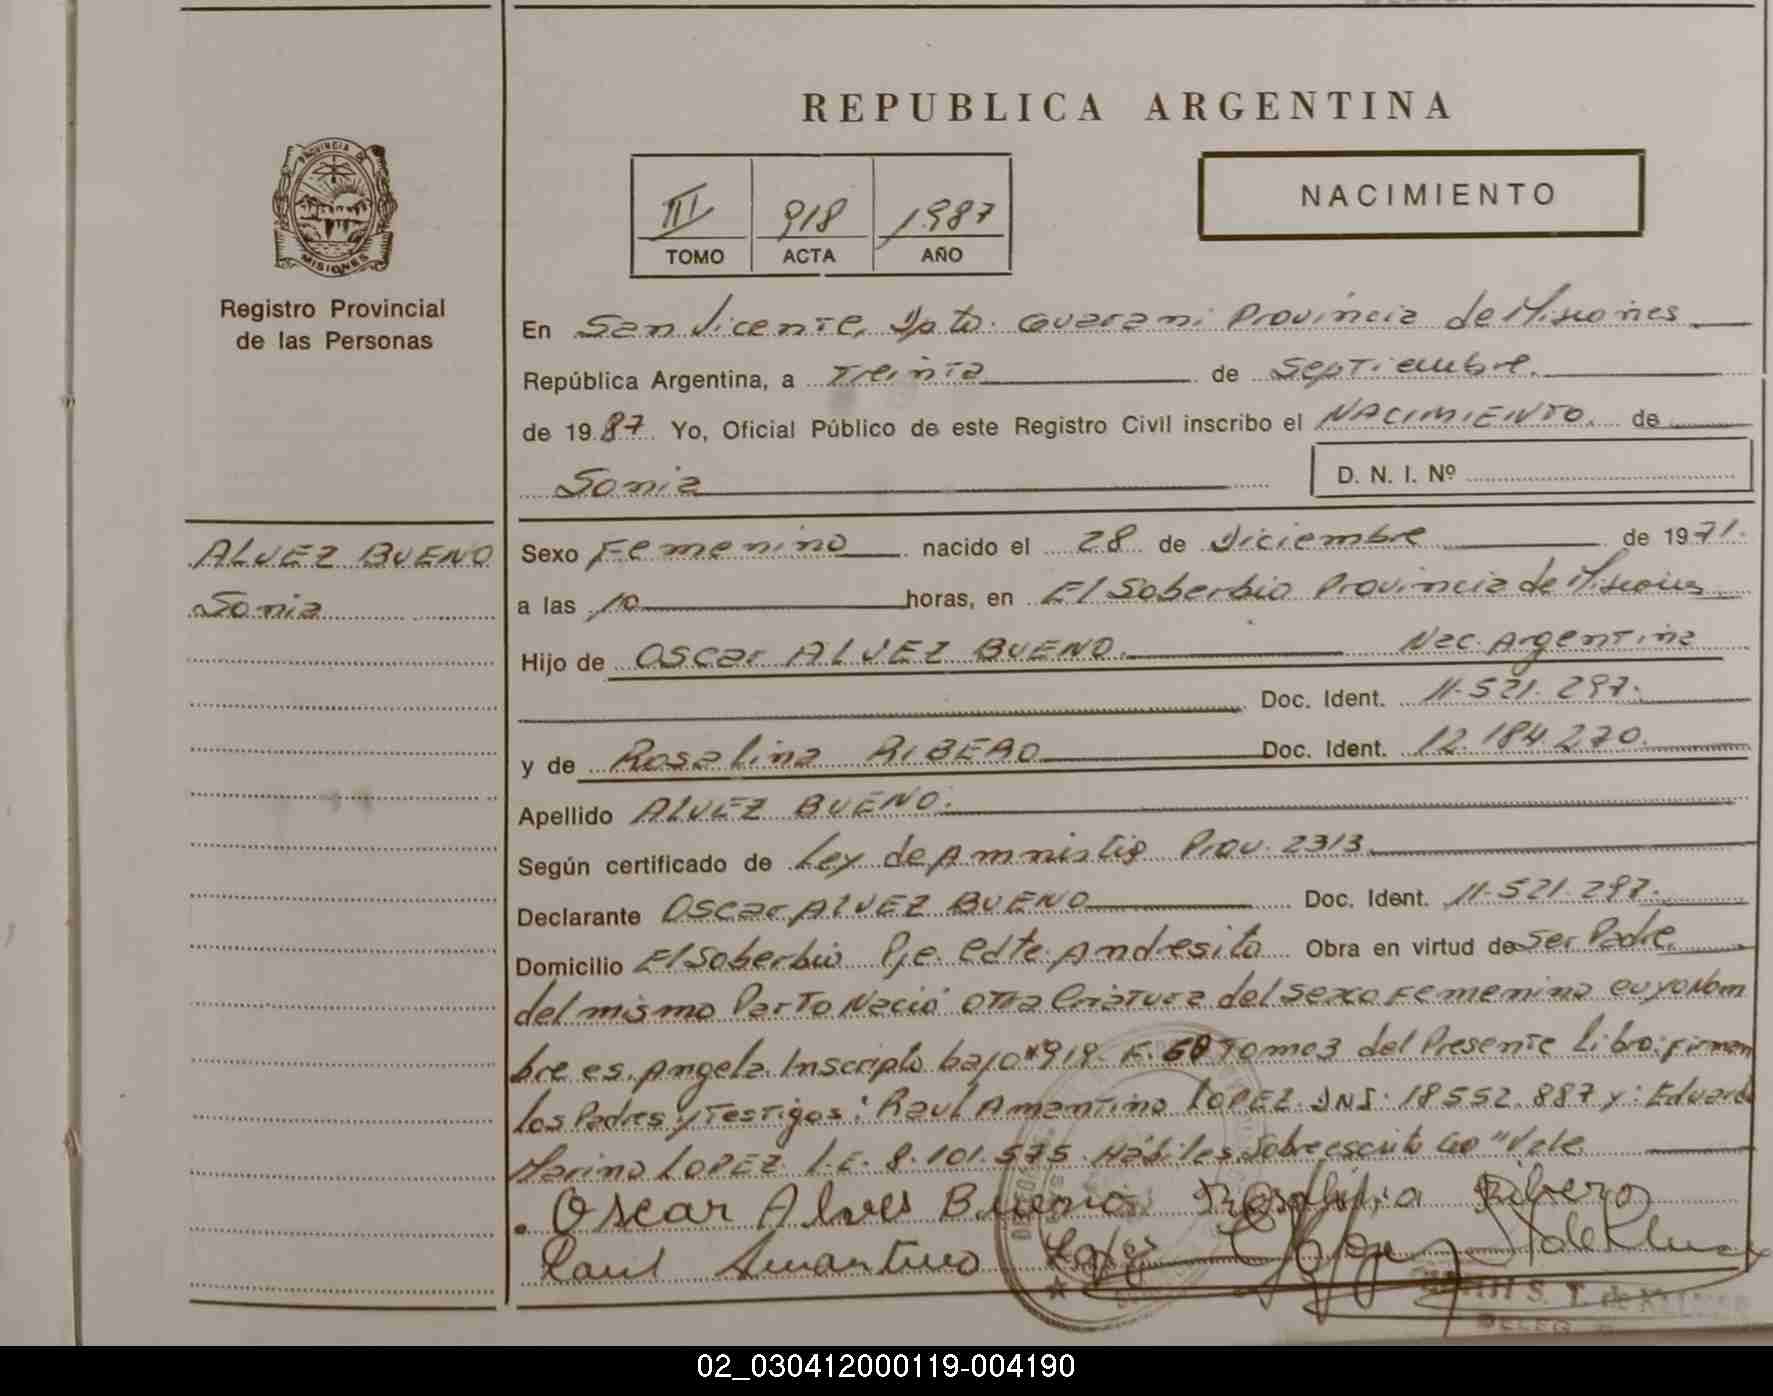 REPUBLICA ARGENTINA
NACIMIENTO
III 918 1987
TOMO ACTA AÑO
PROVINCIA DE
MISIONES
Registro Provincial
de las Personas
En San Vicente, Dpto. Guarani Provincia de Misiones
República Argentina, a Treinta de Septiembre.
de 1987 Yo, Oficial Público de este Registro Civil inscribo el NACIMIENTO. de
Sonia D. N. I. Nº
ALVEZ BUENO
Sonia
Sexo Femenino nacido el 28 de Diciembre de 1971.
a las 10 horas, en El Soberbio Provincia de Misiones
Hijo de Oscar ALVEZ BUENO. Nac. Argentina
Doc. Ident. 11.521.297.
y de Rosalina RIBERO Doc. Ident. 12.184.270.
Apellido ALVEZ BUENO.
Según certificado de Ley de Amnistia Prov. 2313.
Declarante Oscar ALVEZ BUENO Doc. Ident. 11.521.297.
Domicilio El Soberbio Pje. Cdte. Andresito Obra en virtud de Ser Padre
del mismo Parto Nació otra Criatura del Sexo Femenino cuyo Nom
bre es Angela Inscripto bajo Nº 919. F. 60 Tomo 3 del Presente Libro: firman
los Padres y Testigos: Raul Amantino LOPEZ. DNI. 18552.887 y: Eduardo
Marino LOPEZ. I.E. 8.101.575. Hábiles. Sobreescrito "Vale
Oscar Alves Bueno Rosalina Ribero
Raul Amantino Lopez
S. T. de
DELEG.
02_030412000119-004190